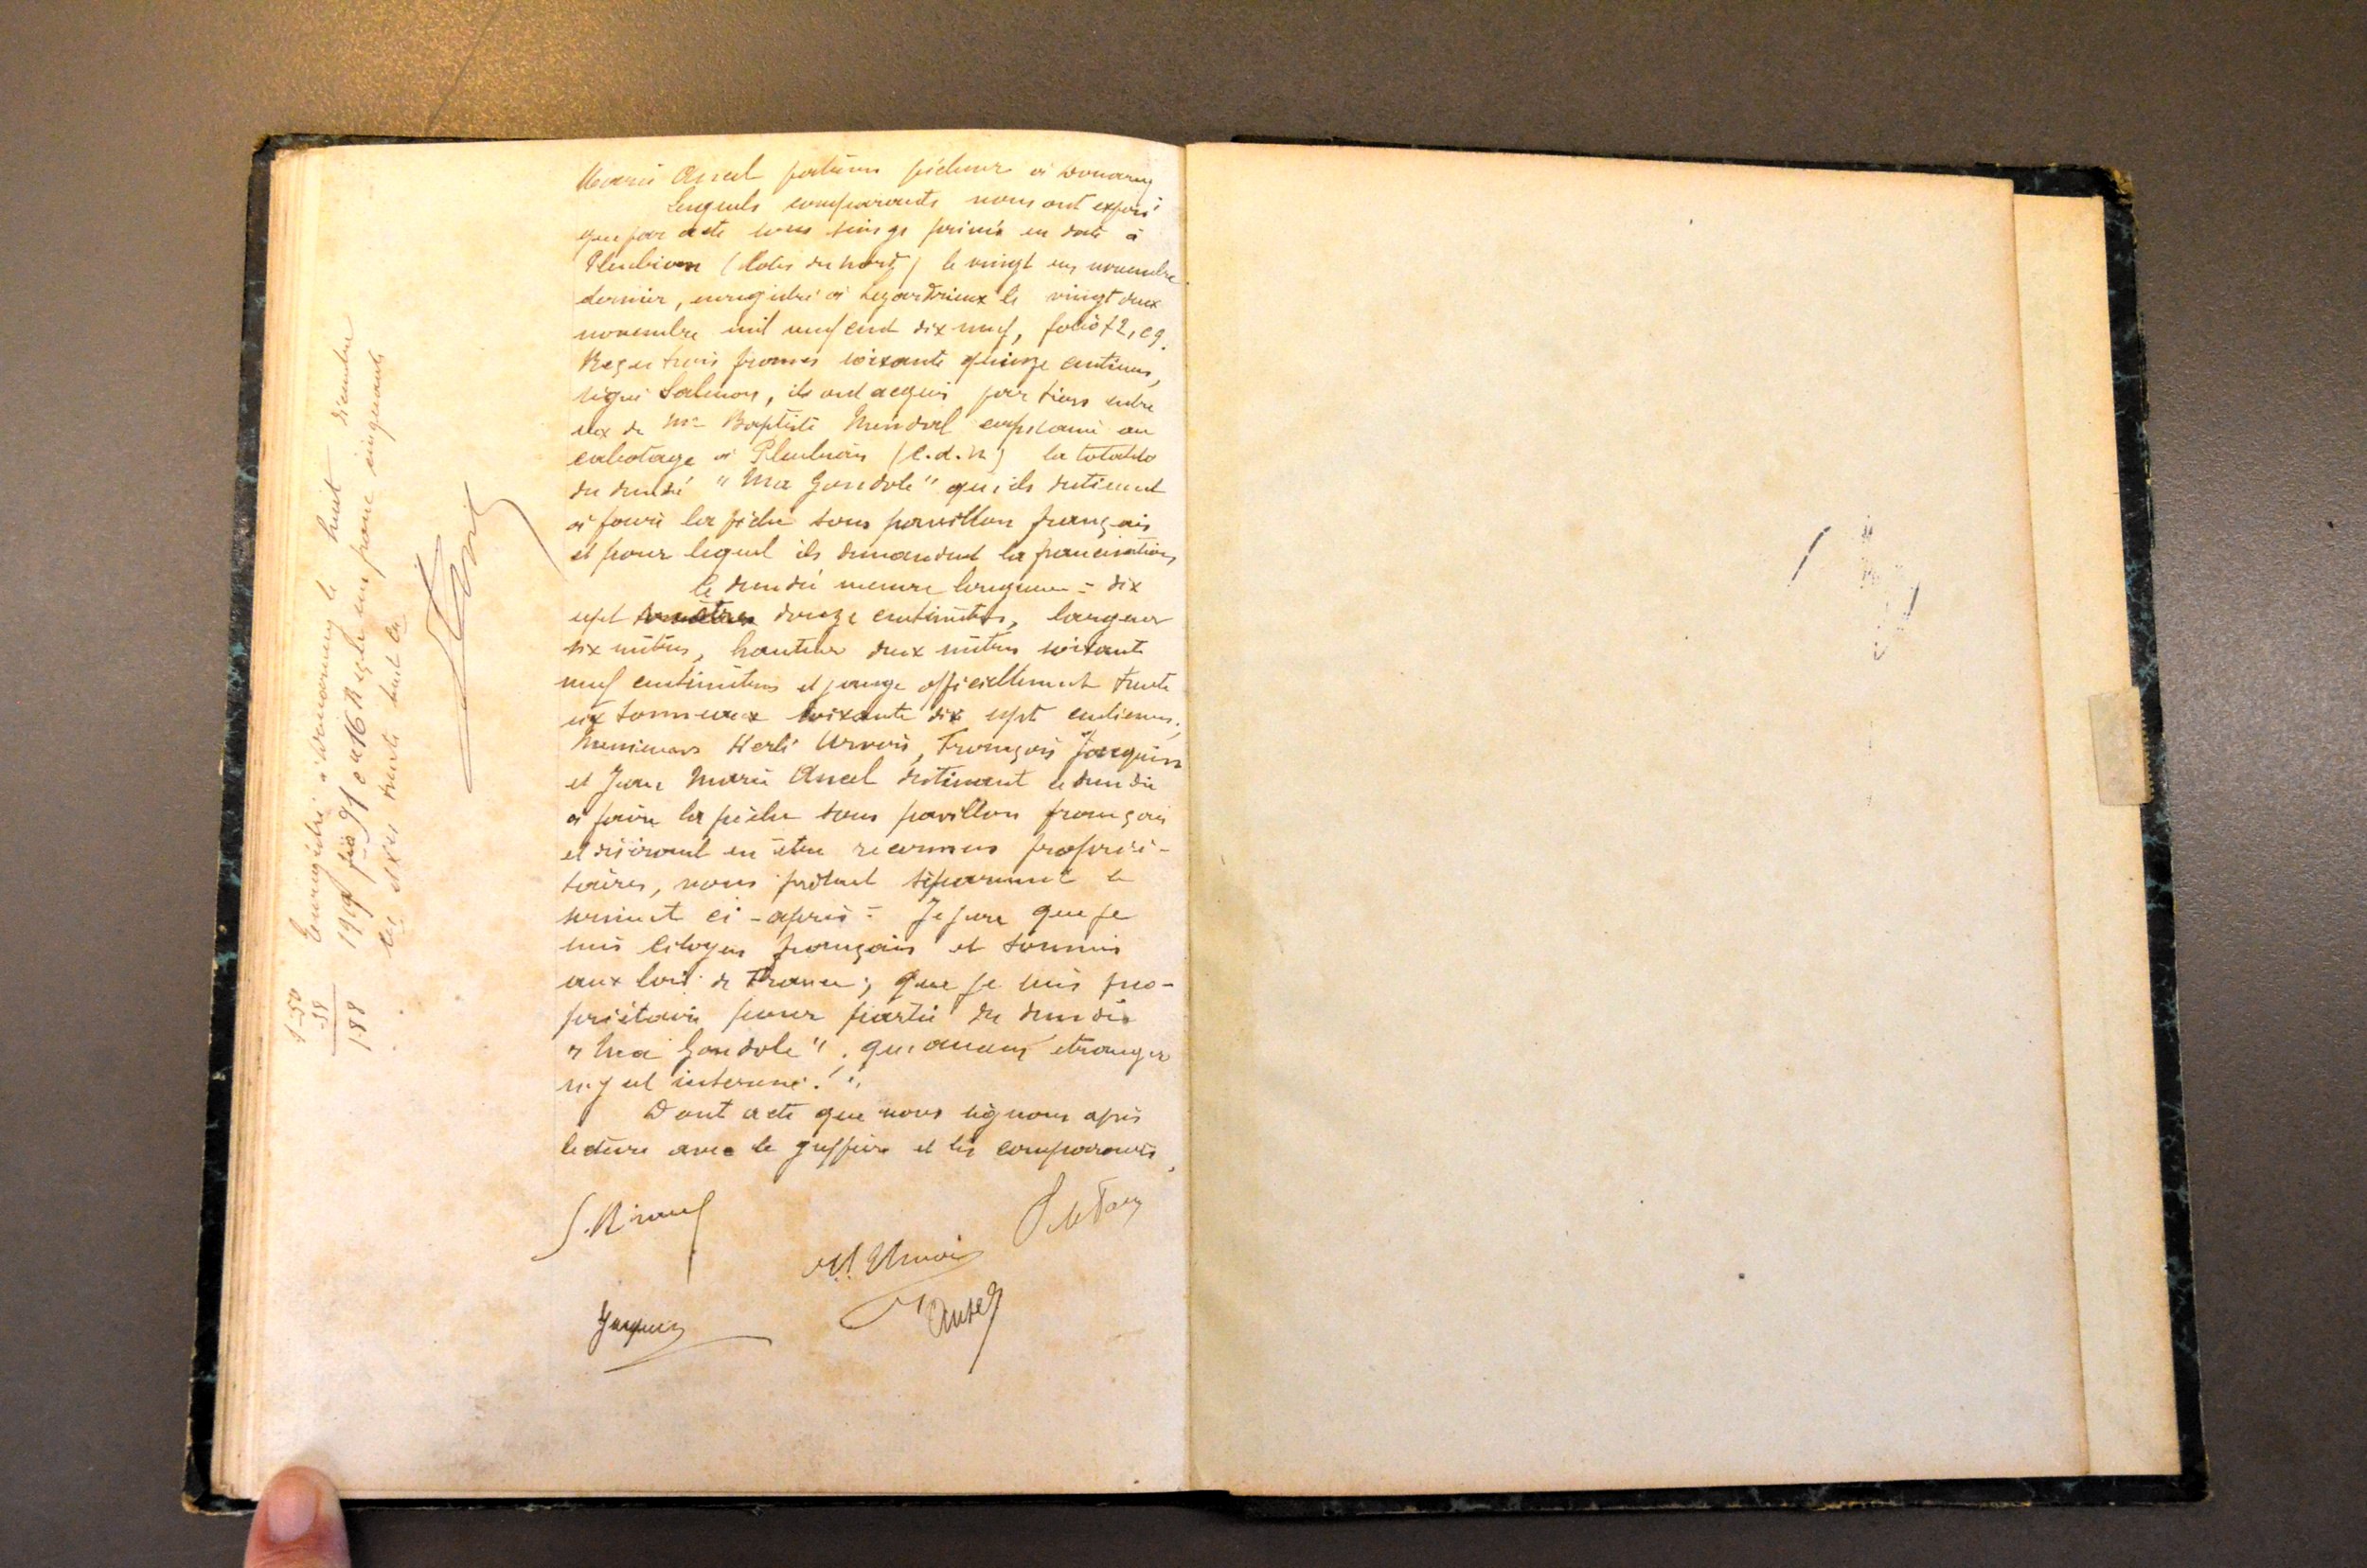 Marie Ansel patron pêcheur à Douarnz
Lesquels comparants nous ont exposé
que par acte sous seings privés en date à
Pleubian (Côtes du Nord) le vingt un novembre
dernier, enregistré à Lezardrieux le vingt deux
novembre mil neuf cent dix neuf, folio 72, c 9.
Reçu trois francs soixante quinze centimes,
signé Salmon, ils ont acquis par tiers entre
eux de Mr Baptiste capitaine au
cabotage à Pleubian (C.d.N) la totalité
du dundé "Ma Gondole" qu'ils destinent
à faire la pêche sous pavillon français
et pour lequel ils demandent la francisation
Ce dundé mesure longueur = dix
sept mètres douze centimètres, largeur
six mètres, hauteur deux mètres soixante
neuf centimètres et jauge officiellement trente
six tonneaux soixante dix sept centièmes.
Messieurs Herlé Urvois, François Jacquin
et Jean Marie Ansel destinant ce dundée
à faire la pêche sous pavillon français
et désirant en être reconnus proprié-
taires, nous prêtent séparément le
serment ci-après = Je jure que je
suis citoyen français et soumis
aux lois de France; que je suis pro-
priétaire pour partie du dundée
"Ma Gondole", qu'aucun étranger
n'y est intéressé."
Dont acte que nous signons après
lecture avec le greffier et les comparants.
H. Urvois
Jacquin
Ansel
Enregistré à Douarnenez le huit décembre
1919 fo 91 case 16 Reçu un franc cinquante
ces et xes trente huit ces
1-50
-38
188